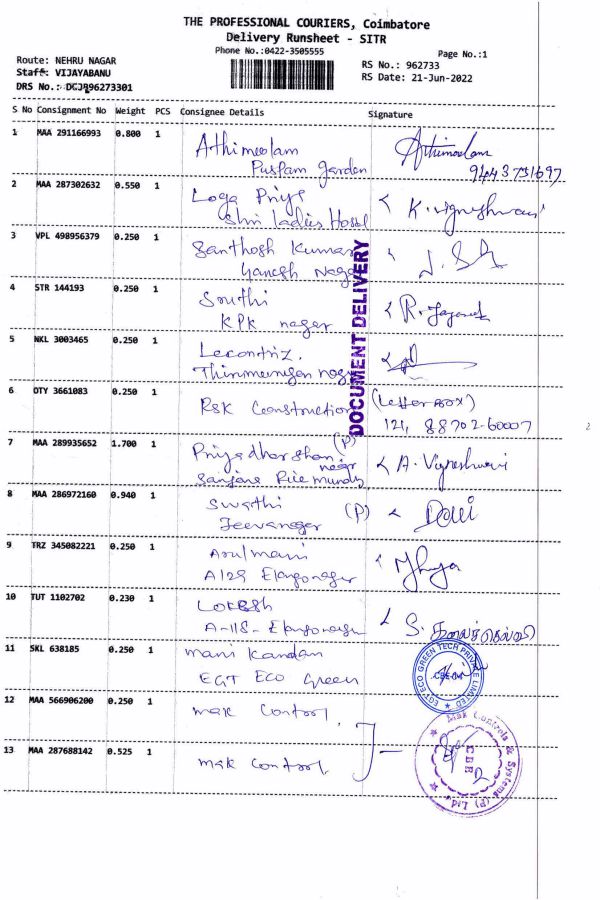 THE PROFESSIONAL COURIERS, Coimbatore
Delivery Runsheet - SITR
Phone No.:0422-3505555
Page No.:1
Route: NEHRU NAGAR
RS No.: 962733
Staff: VIJAYABANU
RS Date: 21-Jun-2022
DRS No.: DCJR96273301
S No Consignment No Weight PCS Consignee Details Signature
1 MAA 291166993 0.800 1 Athimoolam Athimoolam
Puspam garden
2 MAA 287302632 0.550 1 Loga Priya K. Vigneshwari
Shri Ladies Hostel
3 VPL 498956379 0.250 1 Santhosh Kumar
Ganesh Nagar
4 STR 144193 0.250 1
KPK nagar
5 NKL 3003465 0.250 1
6 OTY 3661083 0.250 1 RSK Construction (Letter Box)
121, 88702-60007
7 MAA 289935652 1.700 1 Priyadharshan (P) A. Vigneshwari
near
8 MAA 286972160 0.940 1 Swathi (P)
Jeevanagar
9 TRZ 345082221 0.250 1 Arulmani
A129 Elangonagar
10 TUT 1102702 0.230 1 Lokesh S. கலைச்செல்வி
A-118- Elangonagar
11 SKL 638185 0.250 1 Mani Kandan
EGT Eco Green
EGT ECO GREEN TECH PRIVATE LIMITED
12 MAA 566906200 0.250 1 Mak Control,
13 MAA 287688142 0.525 1 Mak Control,
Mak Controls & Systems (P) Ltd.
CBE
DOCUMENT DELIVERY